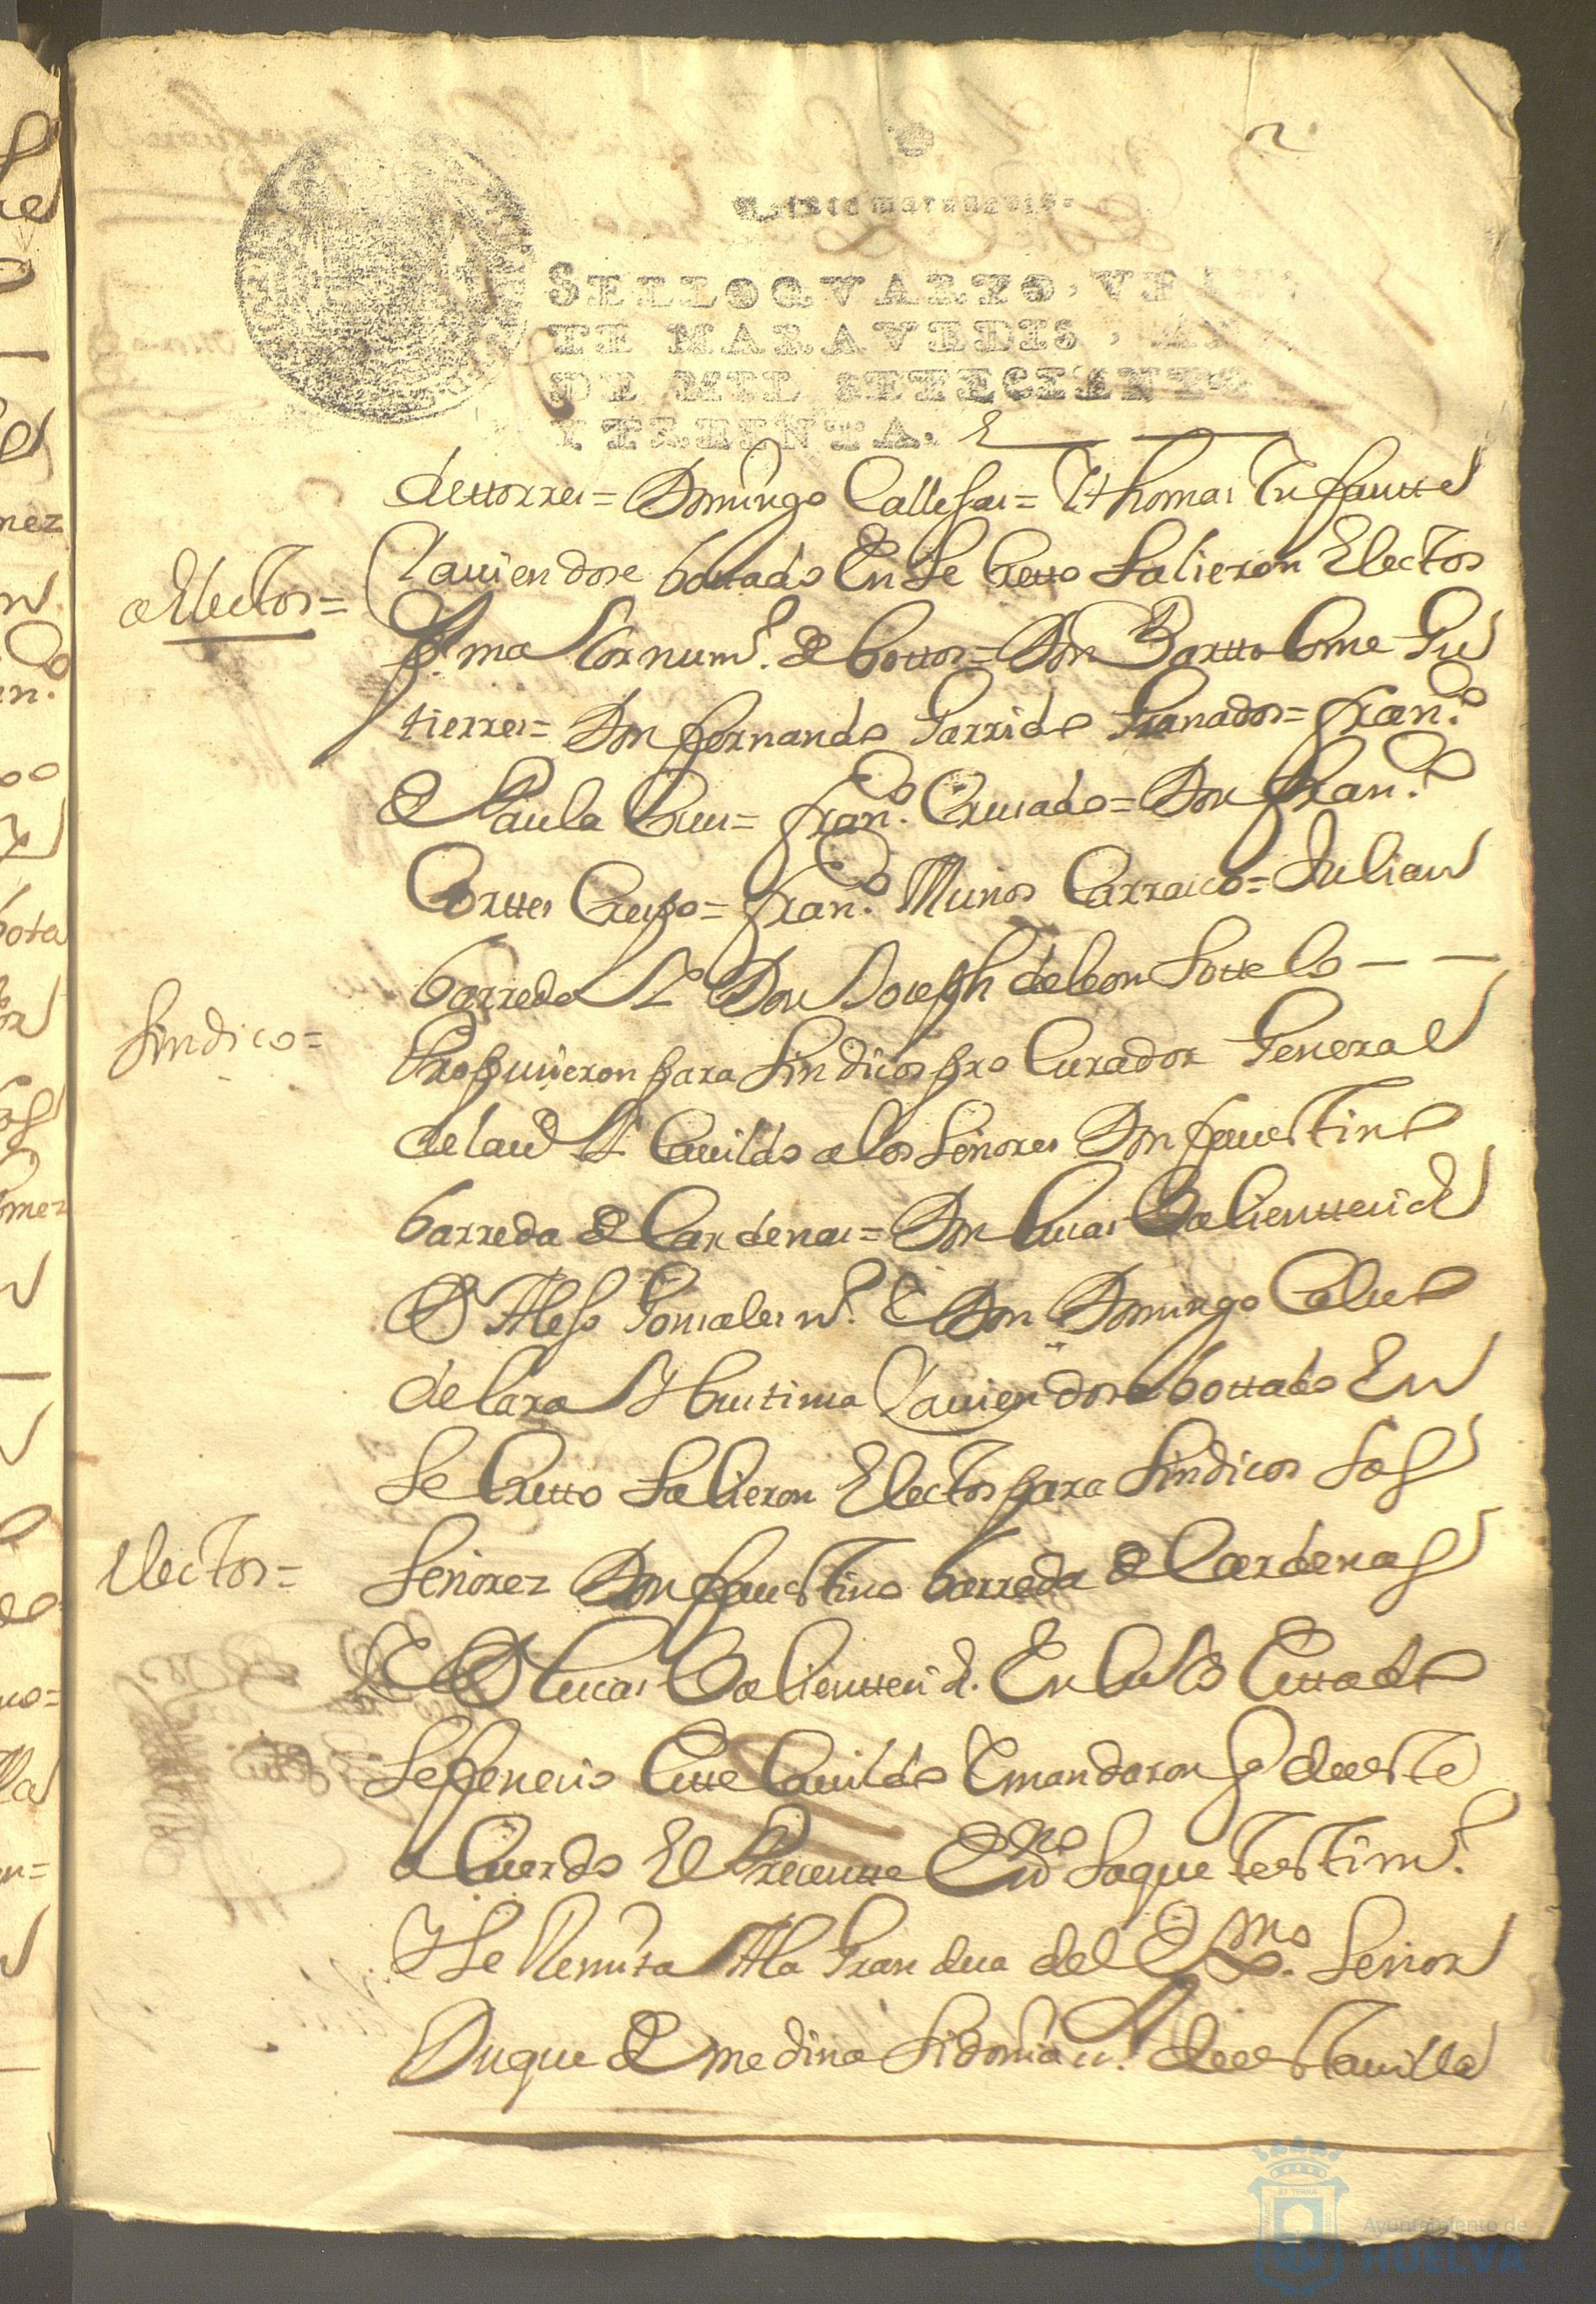 2
Veinte maravedis.
SELLO QVARTO, VEIN
TE MARAVEDIS, AÑ
DE MIL SETECIENTO
Y TREINTA.
dettorres = Domingo Callejas = Y thomas Infantte
electos =
Y auiendose bottado En secretto salieron Electos
Por mas Cor num.º de bottos = Don Barttolome Gu
tierres = Don fernando Garrido Granados = fran.co
de Paula Crus = fran.co Crusado = Don fran.co
Corttes Crespo = fran.co Munos Carrasco = Julian
barreda Y Don Joseph de leon Sottelo — —
Sindico =
Propusieron para Sindicos procurador General
de Cauildo a los Senores Don faustino
barreda de Cardenas = Don lucas Balienttes
D Alejo Gonsales Y Don Domingo Caluo
de lara Y Auiendose bottado En
Secretto Salieron Electos para Sindicos los
Electos =
Senorez Don faustino barreda de Cardenas
Y D lucas Balienttes En Cuio Esttado
Se fenecio Estte Cauildo Y mandaron q de este
aCuerdo El Presentte Es.no Saque testim.o
Y Se Remita A la Grandesa del Ex.mo Senor
Duque de medina Sidonia S.r de esta uilla
Ayuntamiento de
HUELVA